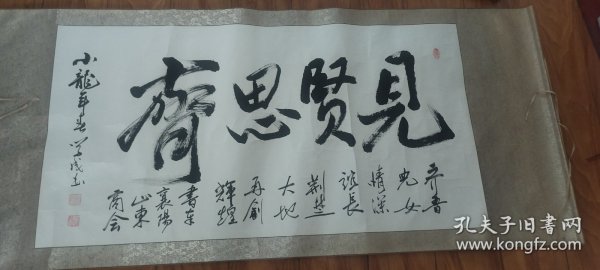 見賢思齊
齐鲁
儿女
情深
谊长
荆楚
大地
再创
辉煌
书奉
襄陽
山東
商会
小龍年春
孔夫子旧书网
www.kongfz.com